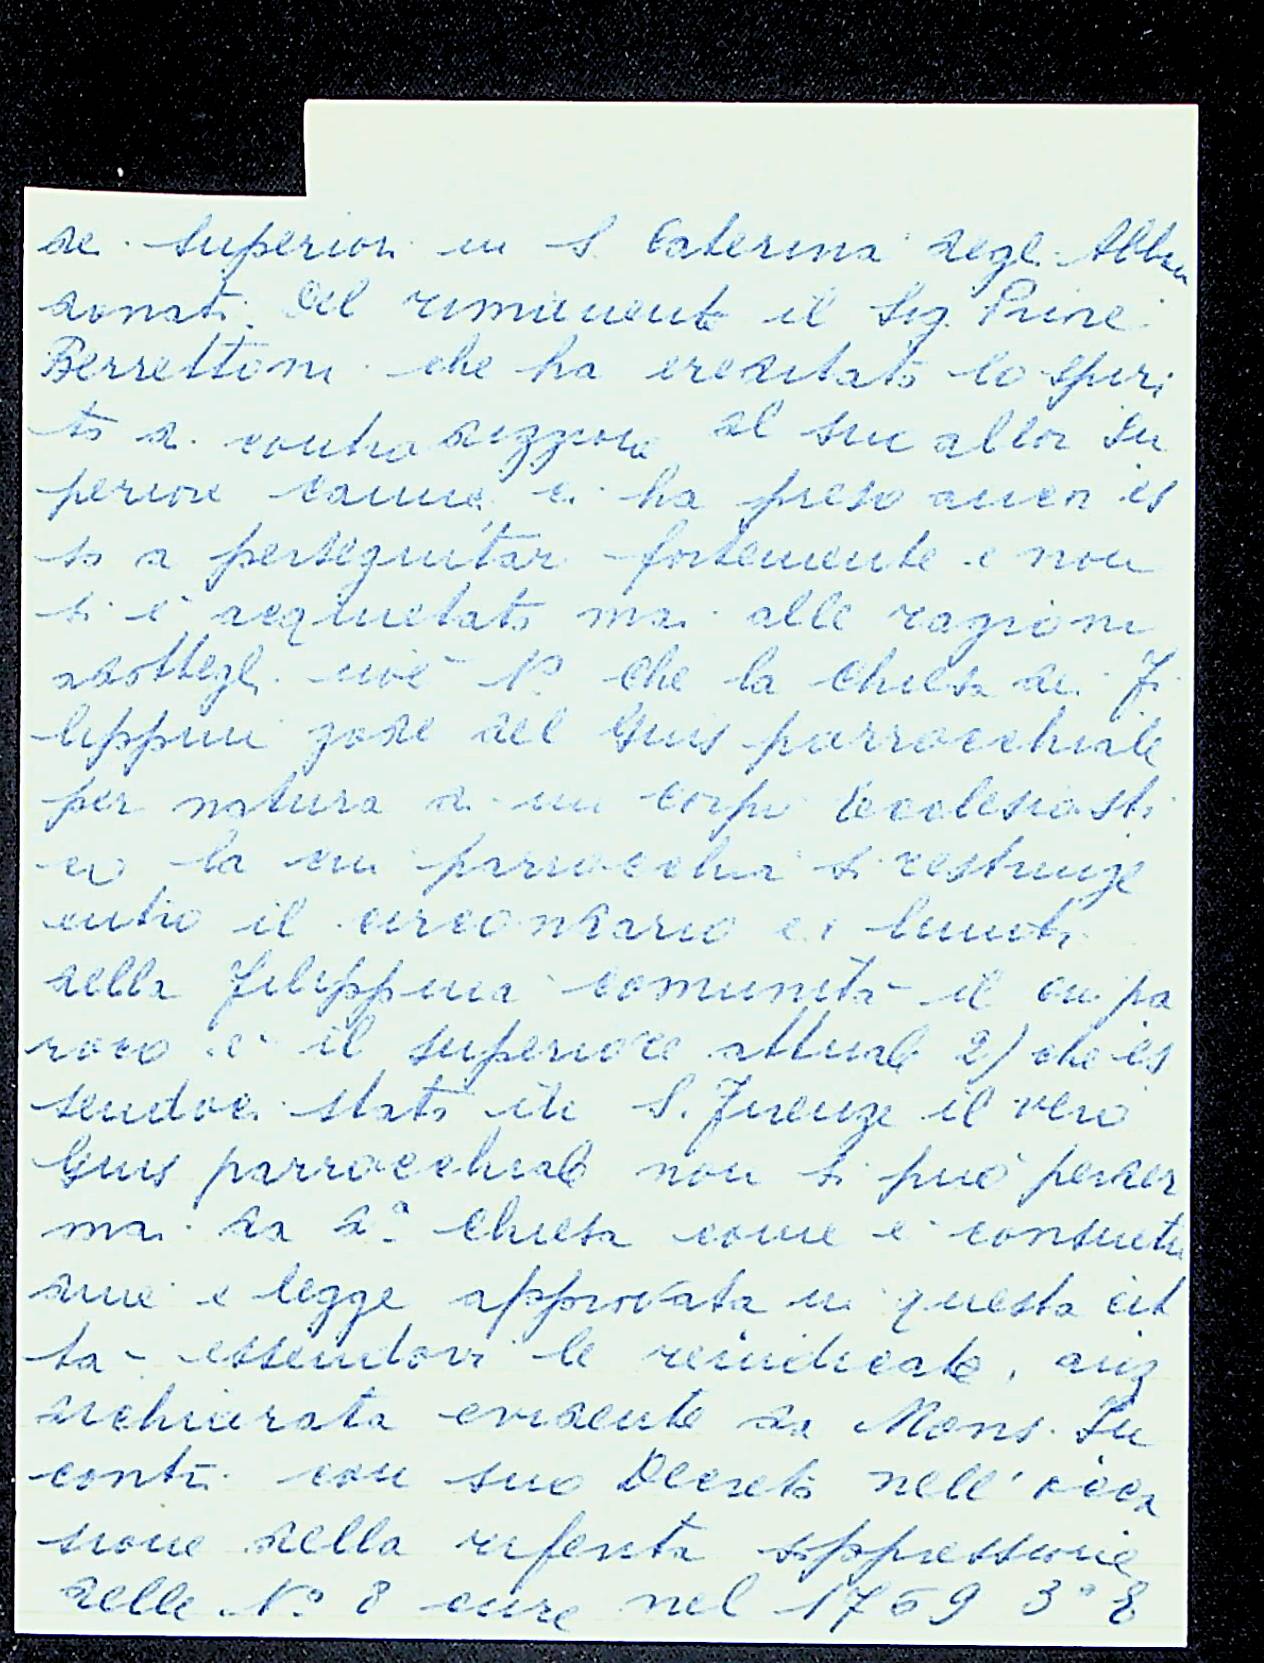 dei Superiori in S. Caterina degli Abban
donati. Del rimanente il Sig. Priore
Berrettoni che ha ereditato lo spiri
to di contradizzione al suo allor Su
periore ci ha preso ancor es
so a perseguitar fortemente e non
si è acquietato mai alle ragioni
adottegli cioè 1º che la Chiesa dei Fi
lippini gode del Gius parrocchiale
per natura di un corpo Ecclesiasti
co la cui parrocchia si restringe
entro il circondario e i limiti
della Filippina comunità il cui pa
roco è il superiore attuale 2) che es
sendovi stato in S. Firenze il vero
Gius parrocchiale non si può perder
mai da dª Chiesa come è consuetu
dine e legge approvata in questa cit
tà essendovi le reindicate, anzi
dichiarata evidente da Mons. In
contri con suo Decreto nell' occa
sione della riferita soppressione
delle Nº 8 cure nel 1769 3º E